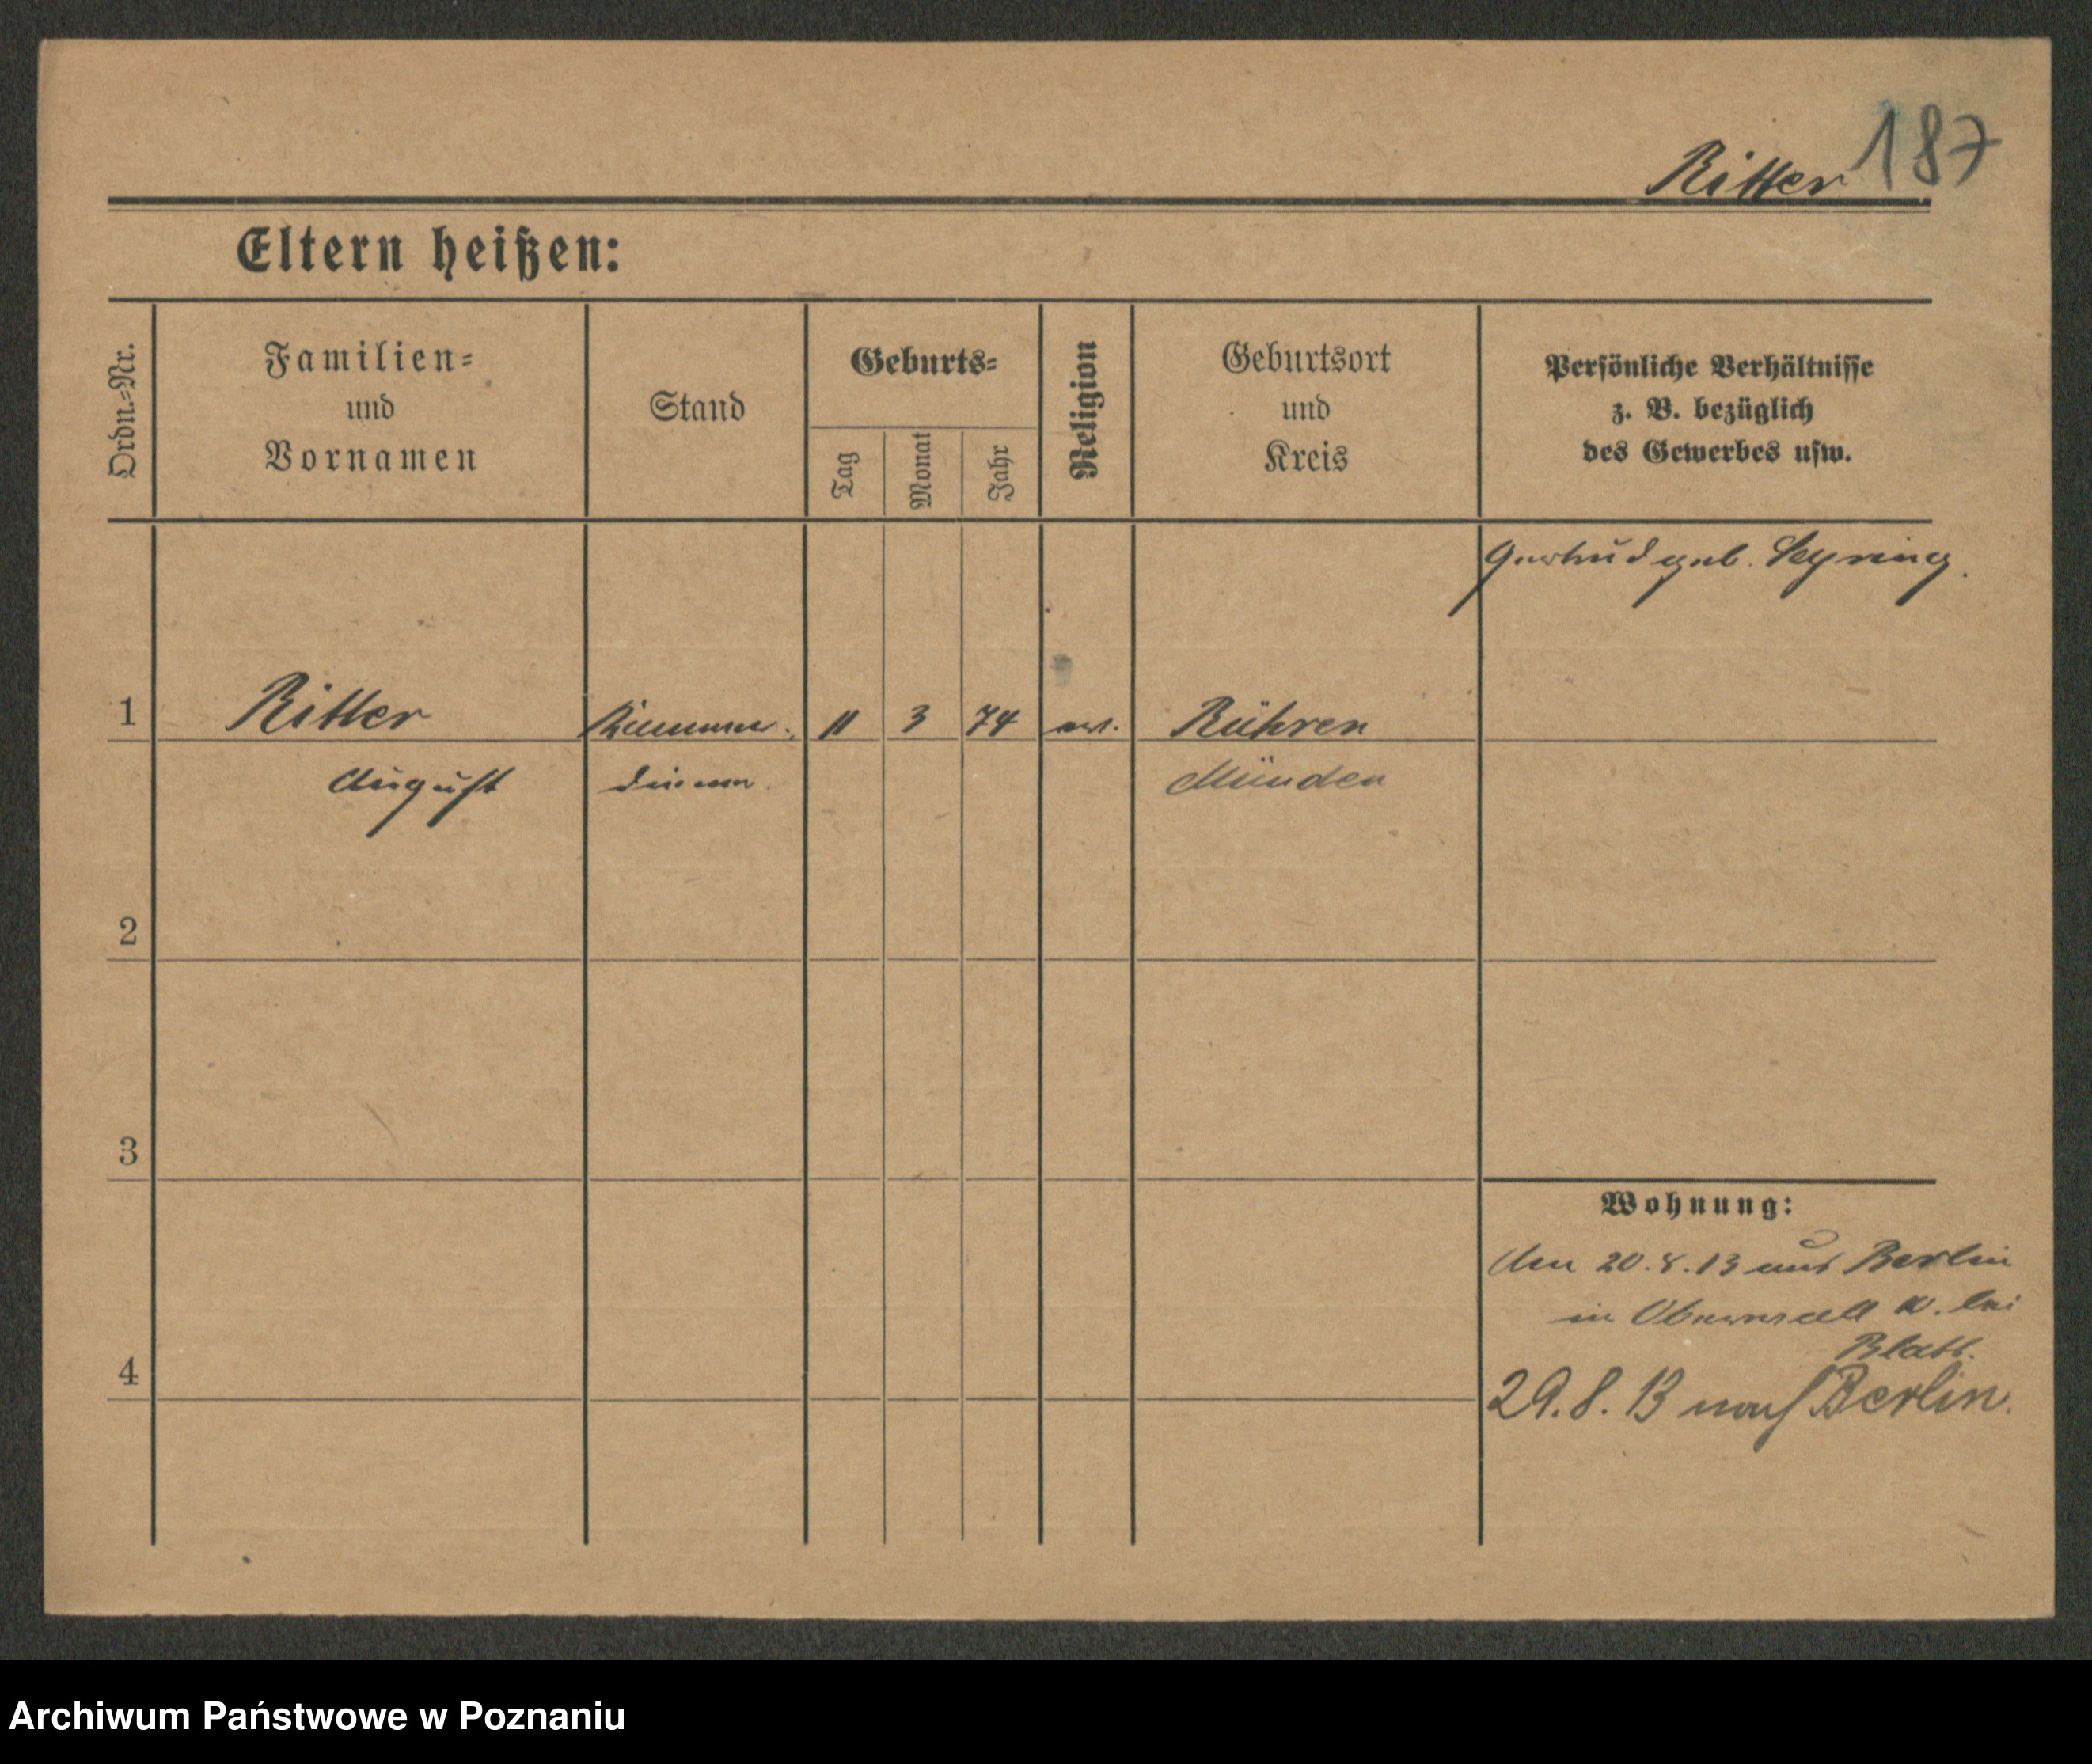 Ritter 187
Eltern heißen:
Ordn.-Nr.
Familien-
und
Vornamen
Stand
Geburts-
Tag
Monat
Jahr
Religion
Geburtsort
und
Kreis
Persönliche Verhältnisse
z. B. bezüglich
des Gewerbes usw.
Gertrud geb. Seyring.
1 Ritter Kammer- 11 3 74 ev. Rühren
August diener. Münden
2
3
Wohnung:
Am 20.8.13 aus Berlin
in bei
Blatt.
4
29.8.13 nach Berlin.
Archiwum Państwowe w Poznaniu